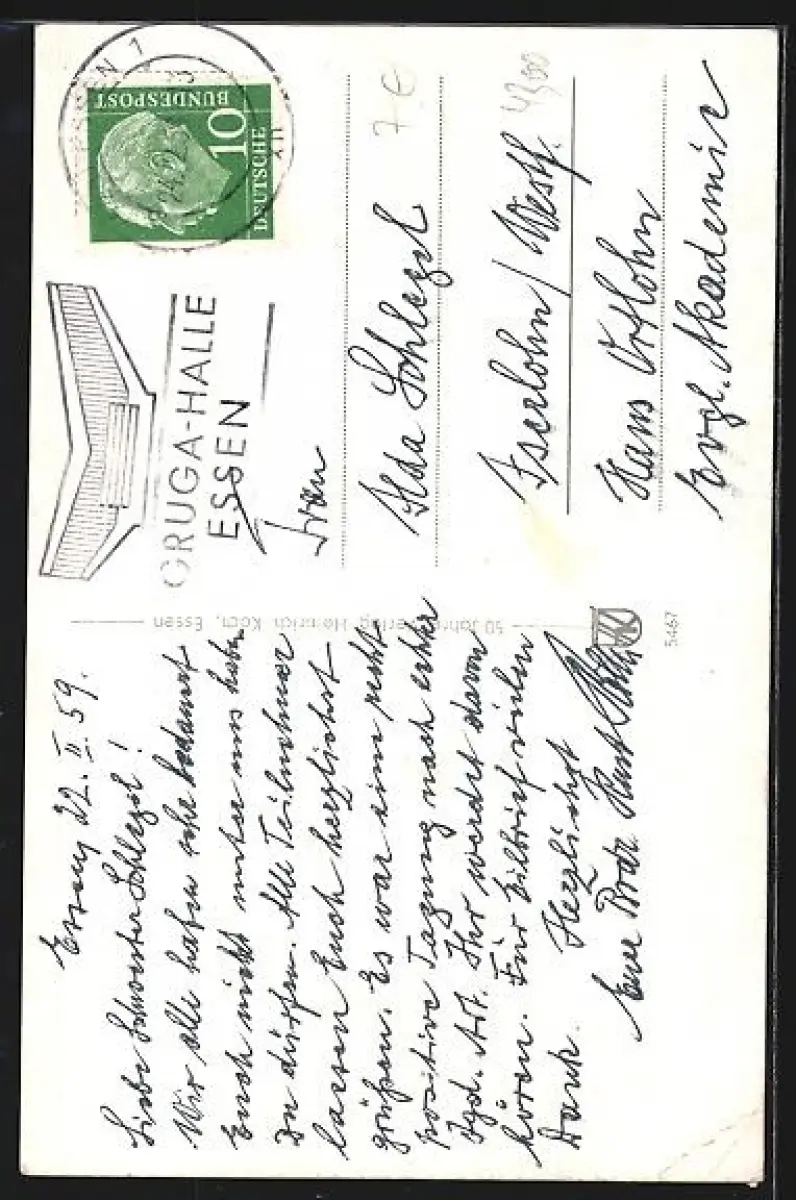 Essen, 22. II. 59.
Liebe Schwester Schlegel!
Wir alle haben sehr bedauert
Euch nicht unter uns haben
zu dürfen. Alle Teilnehmer
lassen Euch herzlichst
grüßen. Es war eine recht
positive Tagung nach echter
Art. Ihr werdet davon
hören. Für Eilbrief vielen
Dank. Herzlichst
Eure Brdr Kurt
ESSEN 1
DEUTSCHE
BUNDESPOST
10
GRUGA-HALLE
ESSEN
50 Jahre Verlag Heinrich Koch, Essen
5467
Frau
Ilda Schlegel
Iserlohn / Westf.
Haus Ortlohn
Evgl. Akademie
7 €
4300